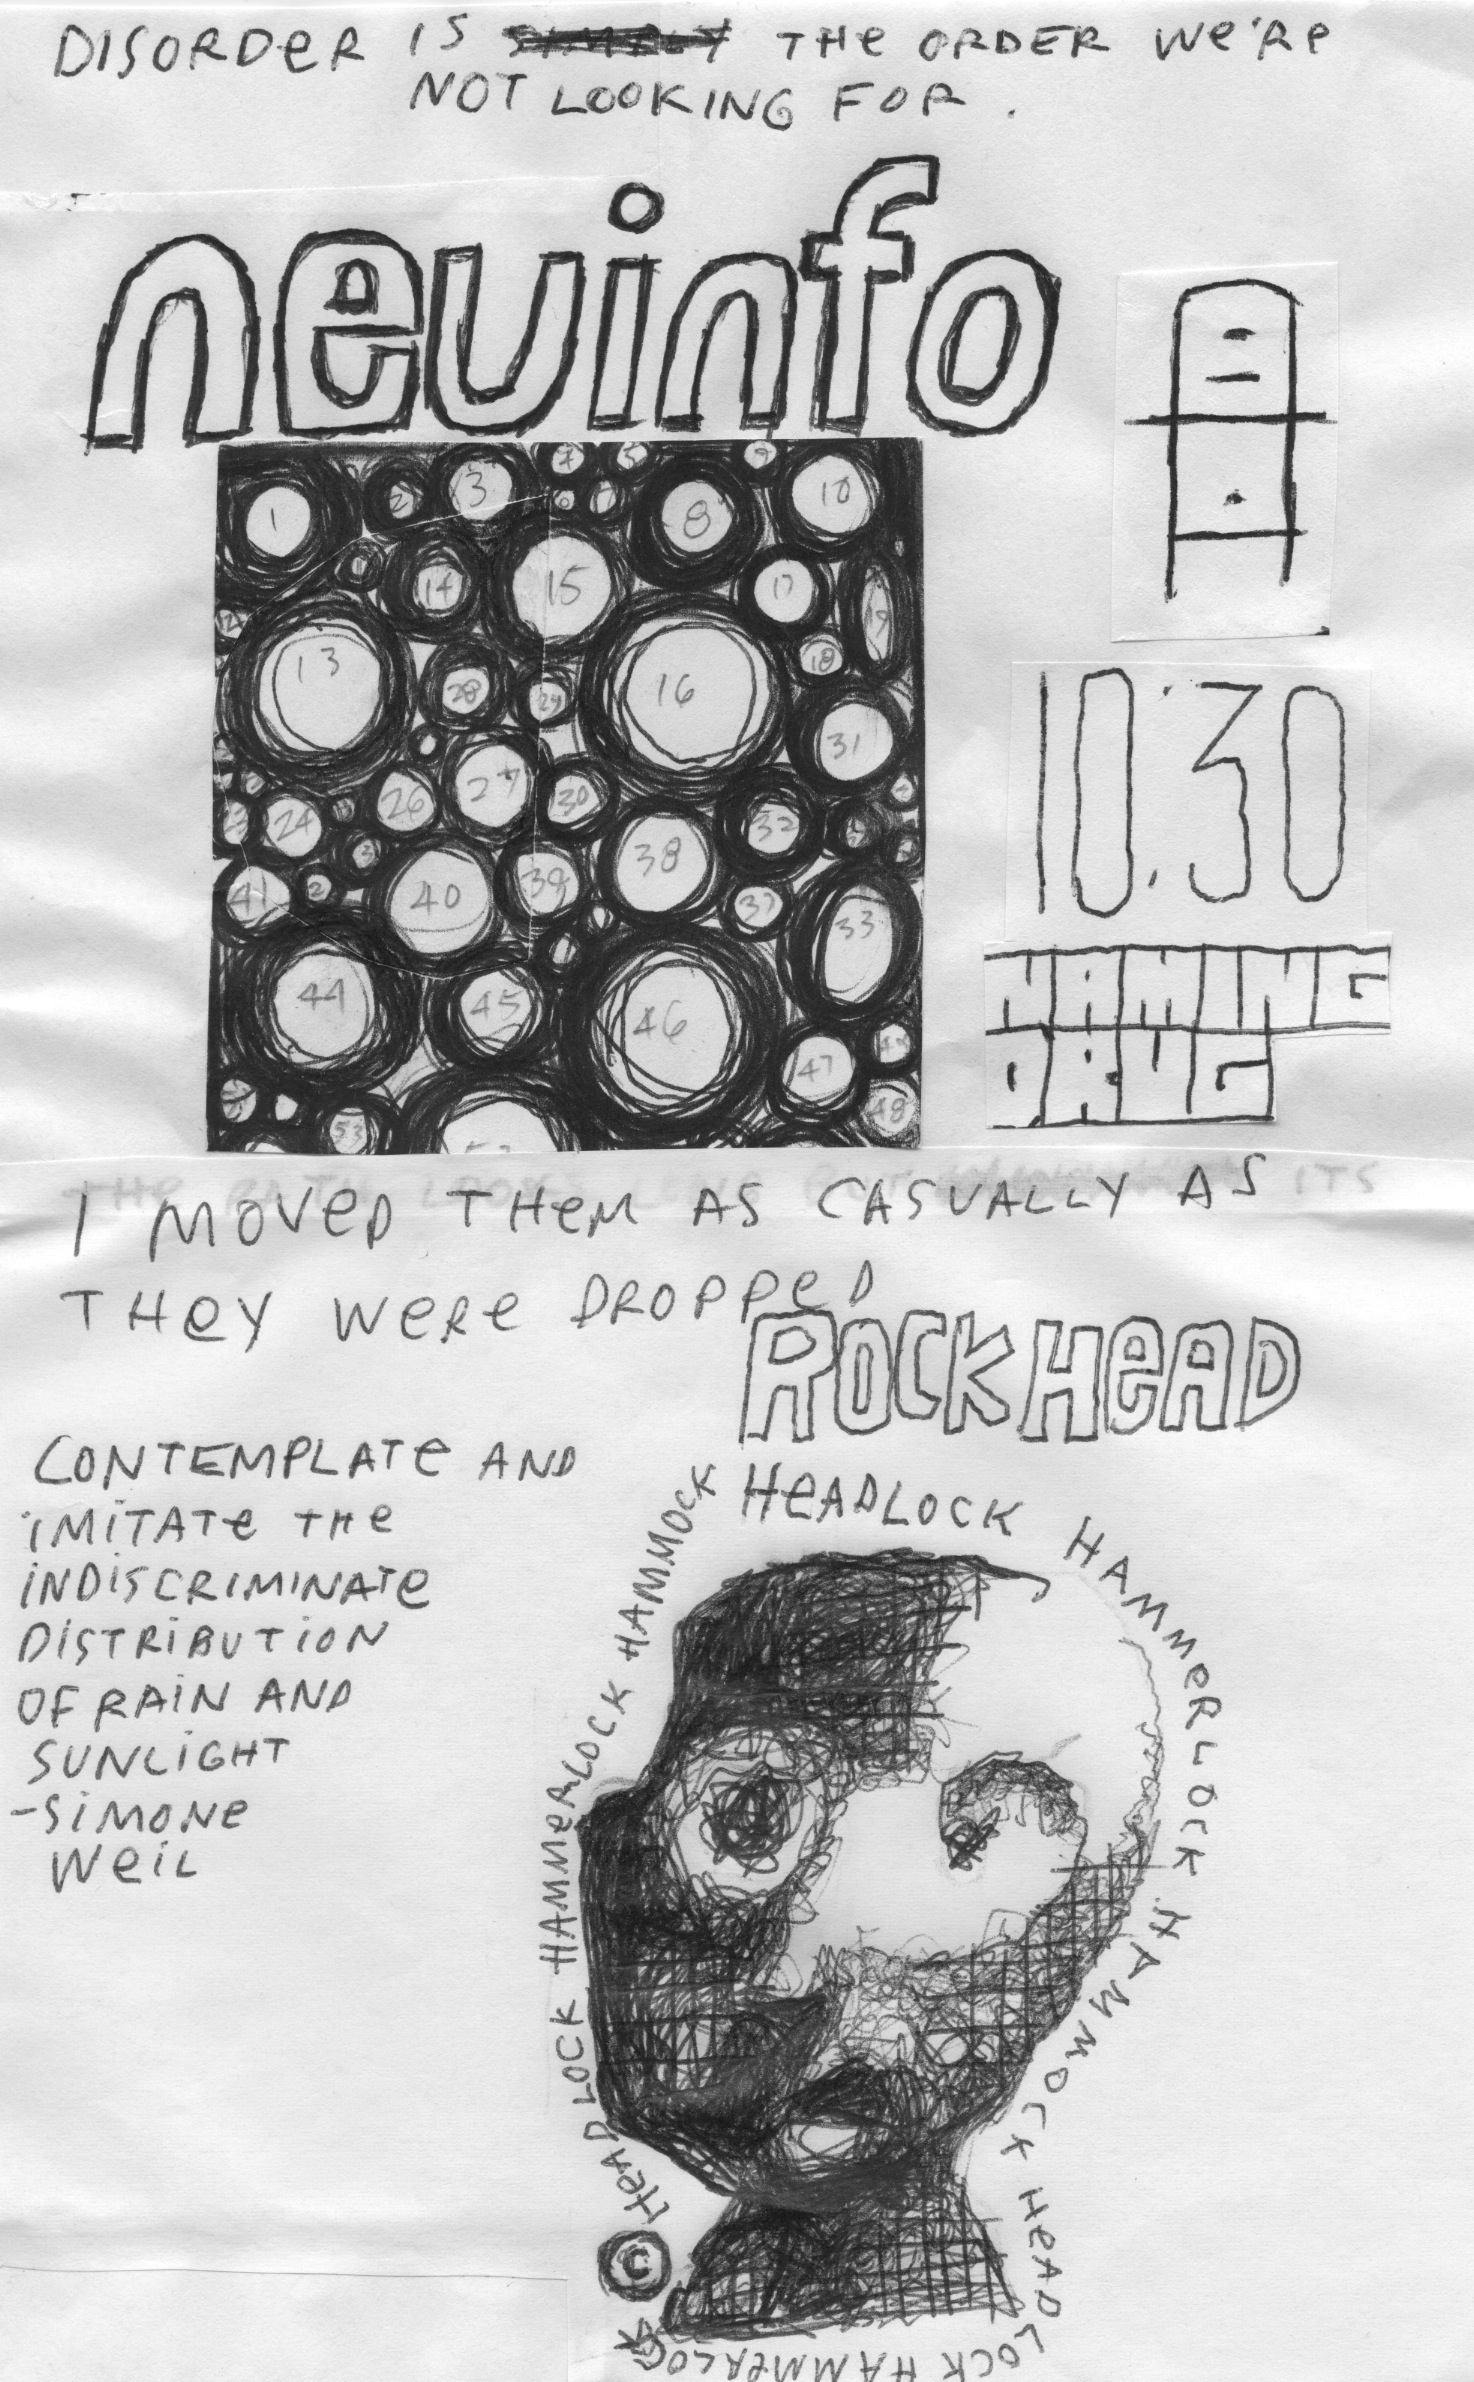 DISORDER IS THE ORDER WE'RE
NOT LOOKING FOR.
neuinfo
1 2 3 7 5 9 10
8
14 15 17
19
13 28 29 16 18
31
26 27 30
23 24 38 32
41 2 40 39 37 33
44 45 46
47
48
53
10:30
NAMING
DRUG
ITS
I MOVED THEM AS CASUALLY AS
THEY WERE DROPPED
ROCKHEAD
CONTEMPLATE AND
IMITATE THE
INDISCRIMINATE
DISTRIBUTION
OF RAIN AND
SUNLIGHT
-SIMONE
WEIL
HEADLOCK HAMMERLOCK HAMMOCK HEADLOCK HAMMERLOCK HAMMOCK HEADLOCK HAMMERLOCK
©